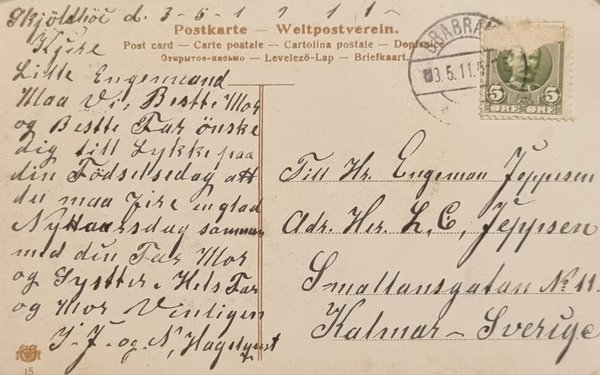 Skjöldhöi d. 3-5-1911-
Kjære
Lille Engemand
Maa Vi, Bestte Mor
og Bestte Far önske
dig till Lykke paa
din Födselsdag att
du maa fire en glad
Nyttaarsdag sammen
med din Far Mor
og Systter, Hels Far
og Mor Venligen
J. J. og N, Hagelqvist
Postkarte – Weltpostverein.
Post card – Carte postale – Cartolina postale – Dopisnice
Открытое-письмо – Levelező-Lap – Briefkaart.
BRABRA
3.5.11.
5 5
ØRE ØRE
Till Hr. Engeman Jeppesen
Adr. Her. L, C, Jeppsen
Smallansgatan No 11.
Kalmar – Sverige
15